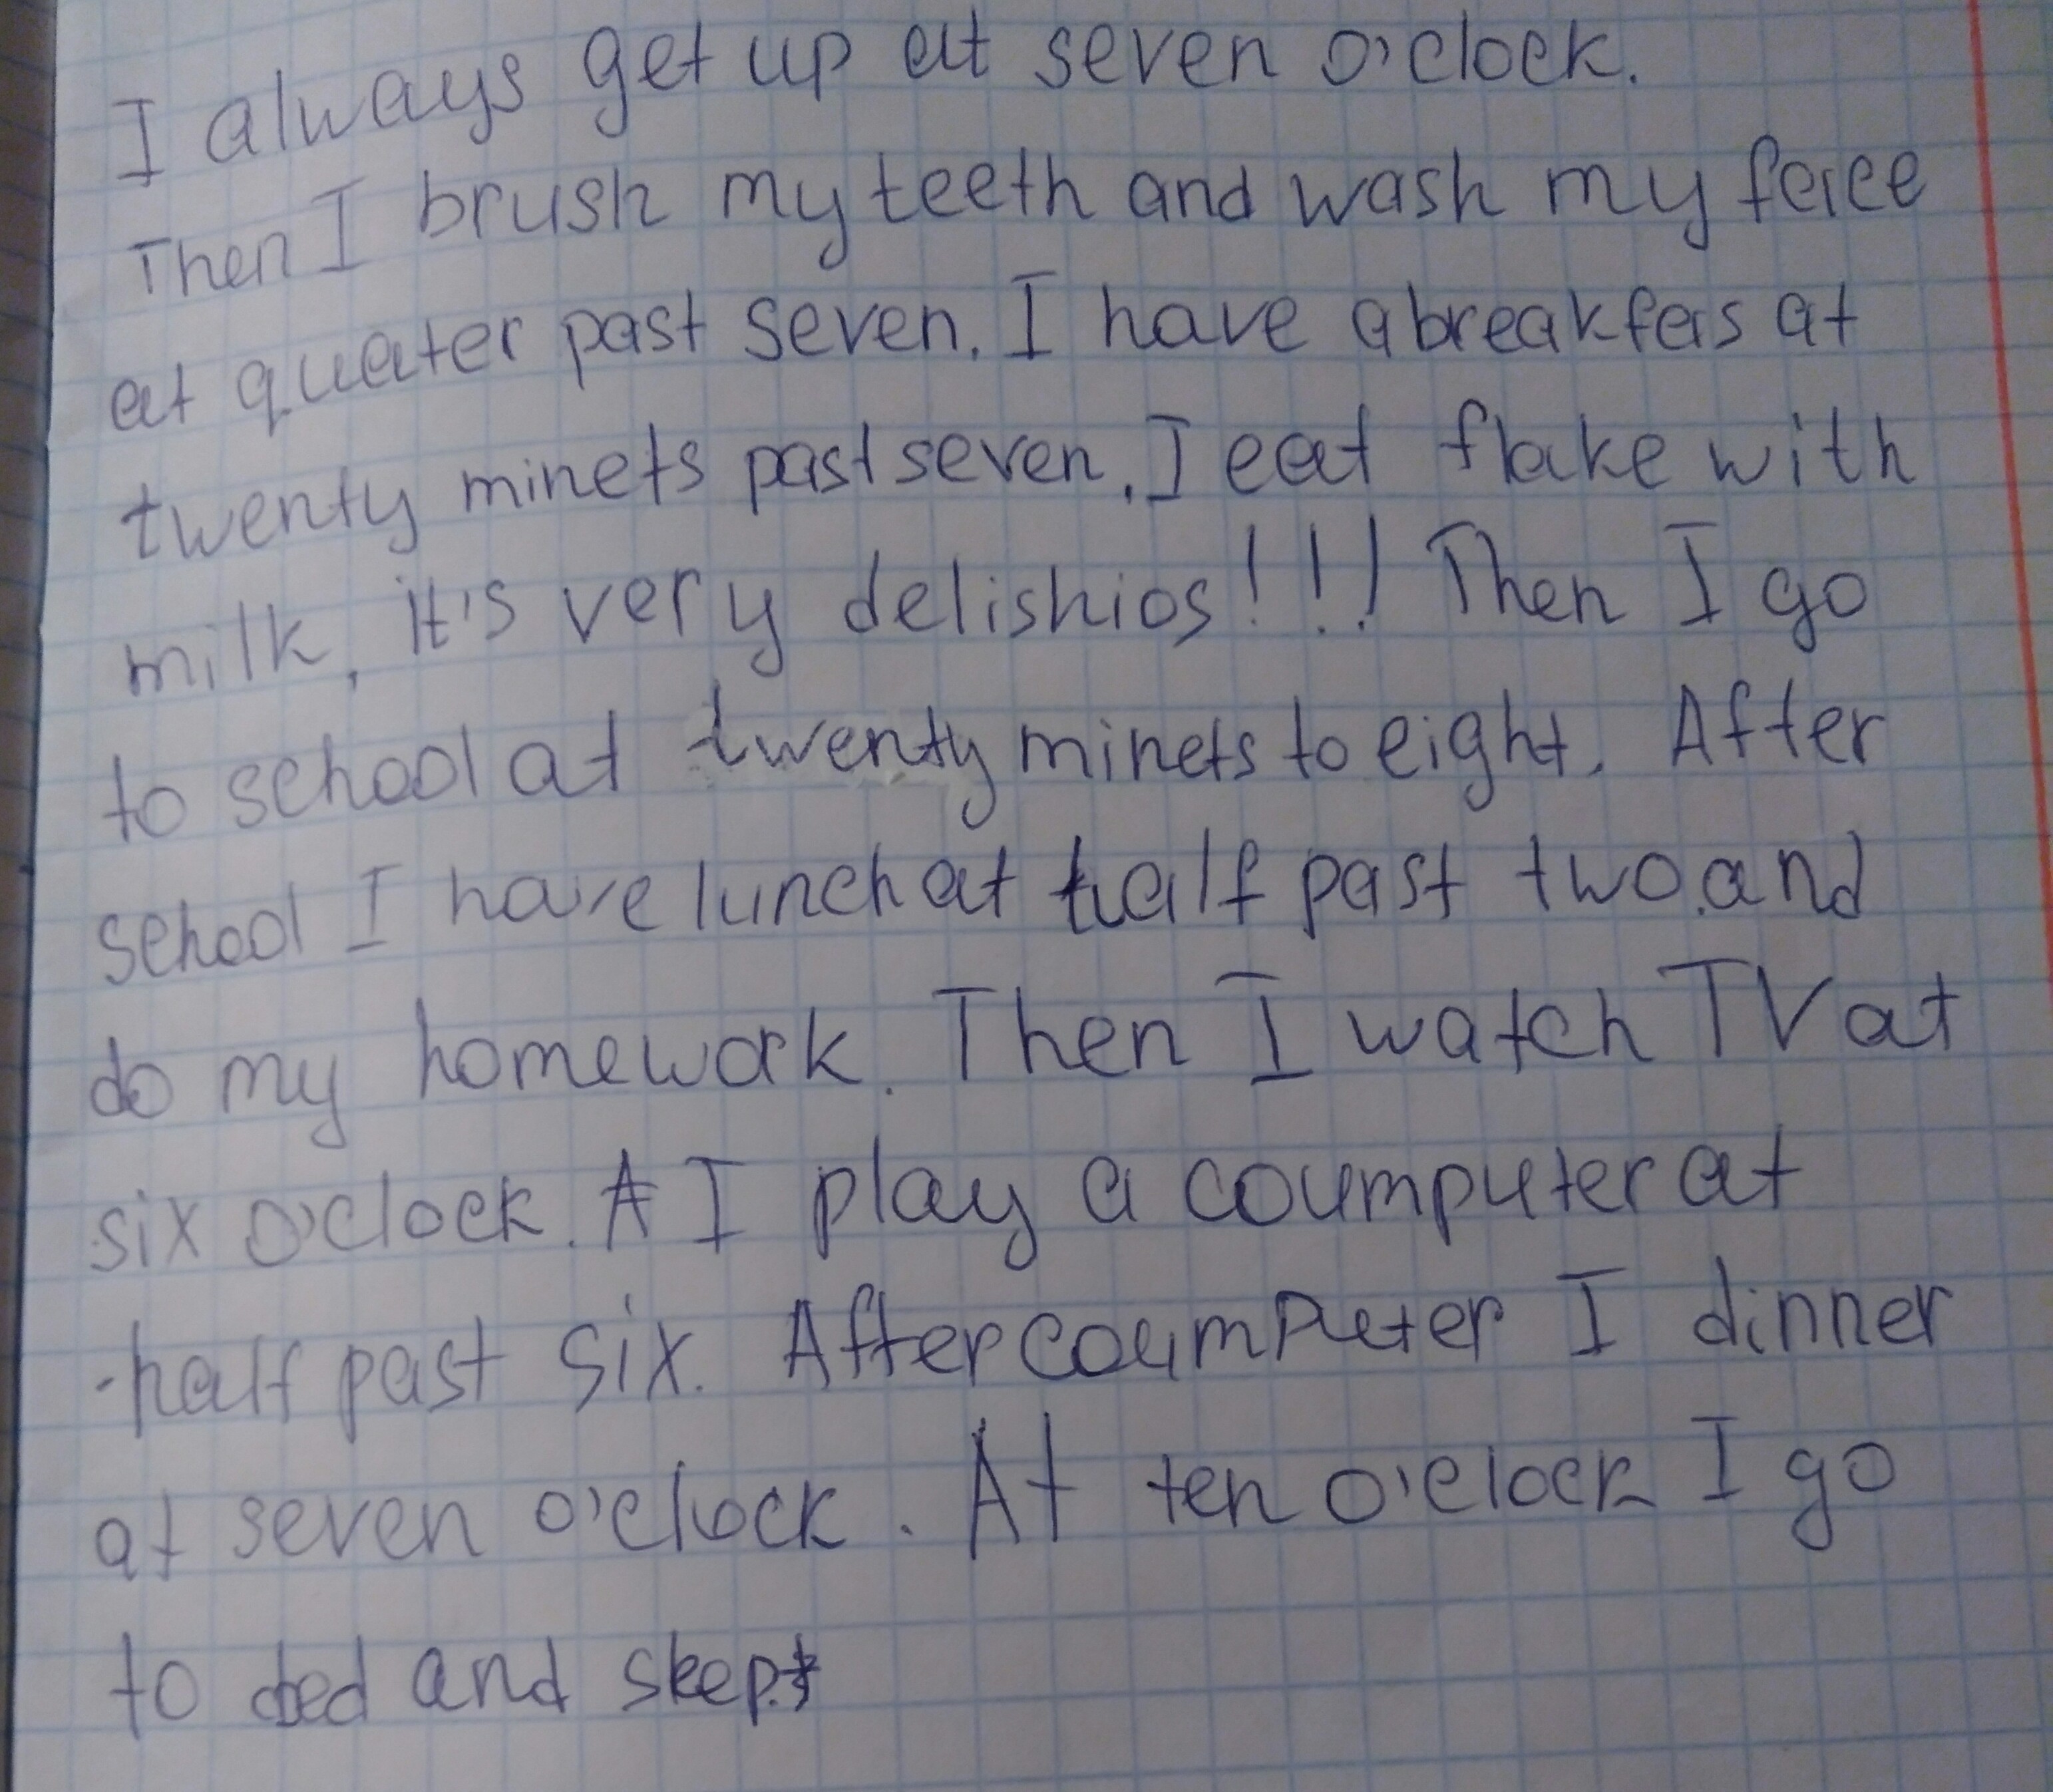 I always get up at seven o'clock.
Then I brush my teeth and wash my face
at quater past seven. I have a breakfas at
twenty minets past seven. I eat flake with
milk, it's very delishios!!! Then I go
to school at twenty minets to eight. After
school I have lunch at half past two. and
do my homework. Then I watch TV at
six o'clock. I play a coumputer at
half past six. After coumputer I dinner
at seven o'clock. At ten o'clock I go
to bed and sleep.